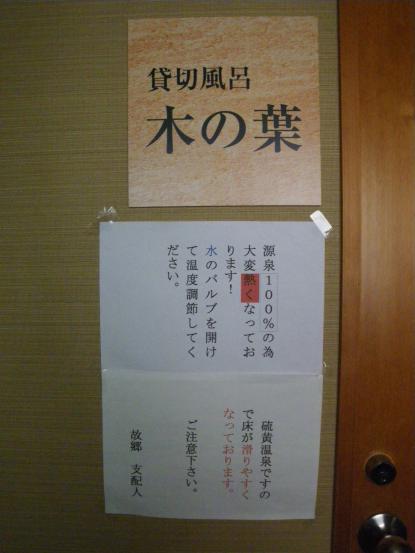 貸切風呂
木の葉
源泉100%の為
大変熱くなってお
ります!
水のバルブを開け
て温度調節してく
ださい。
硫黄温泉ですの
で床が滑りやすく
なっております。
ご注意下さい。
故郷 支配人